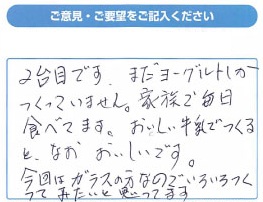 ご意見・ご要望をご記入ください
2台目です。まだヨーグルトしか
つくっていません。家族で毎日
食べてます。おいしい牛乳でつくる
と、なお おいしいです。
今回はガラスの方なのでいろいろつく
ってみたいと思ってます